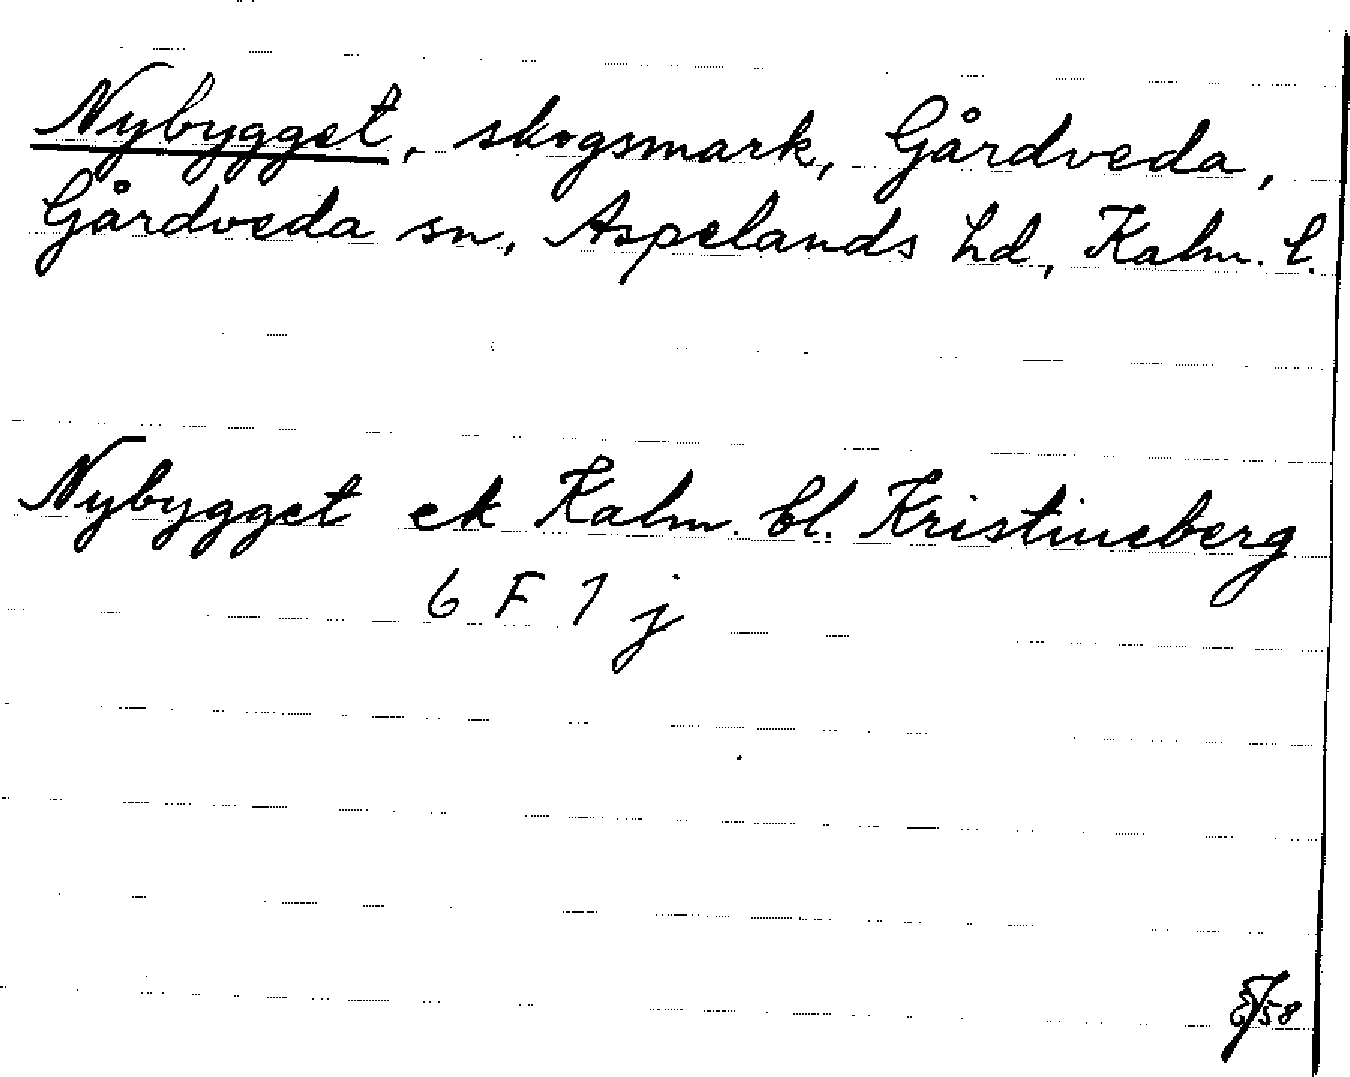 Nybygget, skogsmark, Gårdveda,
Gårdveda sn, Aspelands hd, Kalm. l.
Nybygget ek Kalm. bl. Kristineberg
6 F 7 j